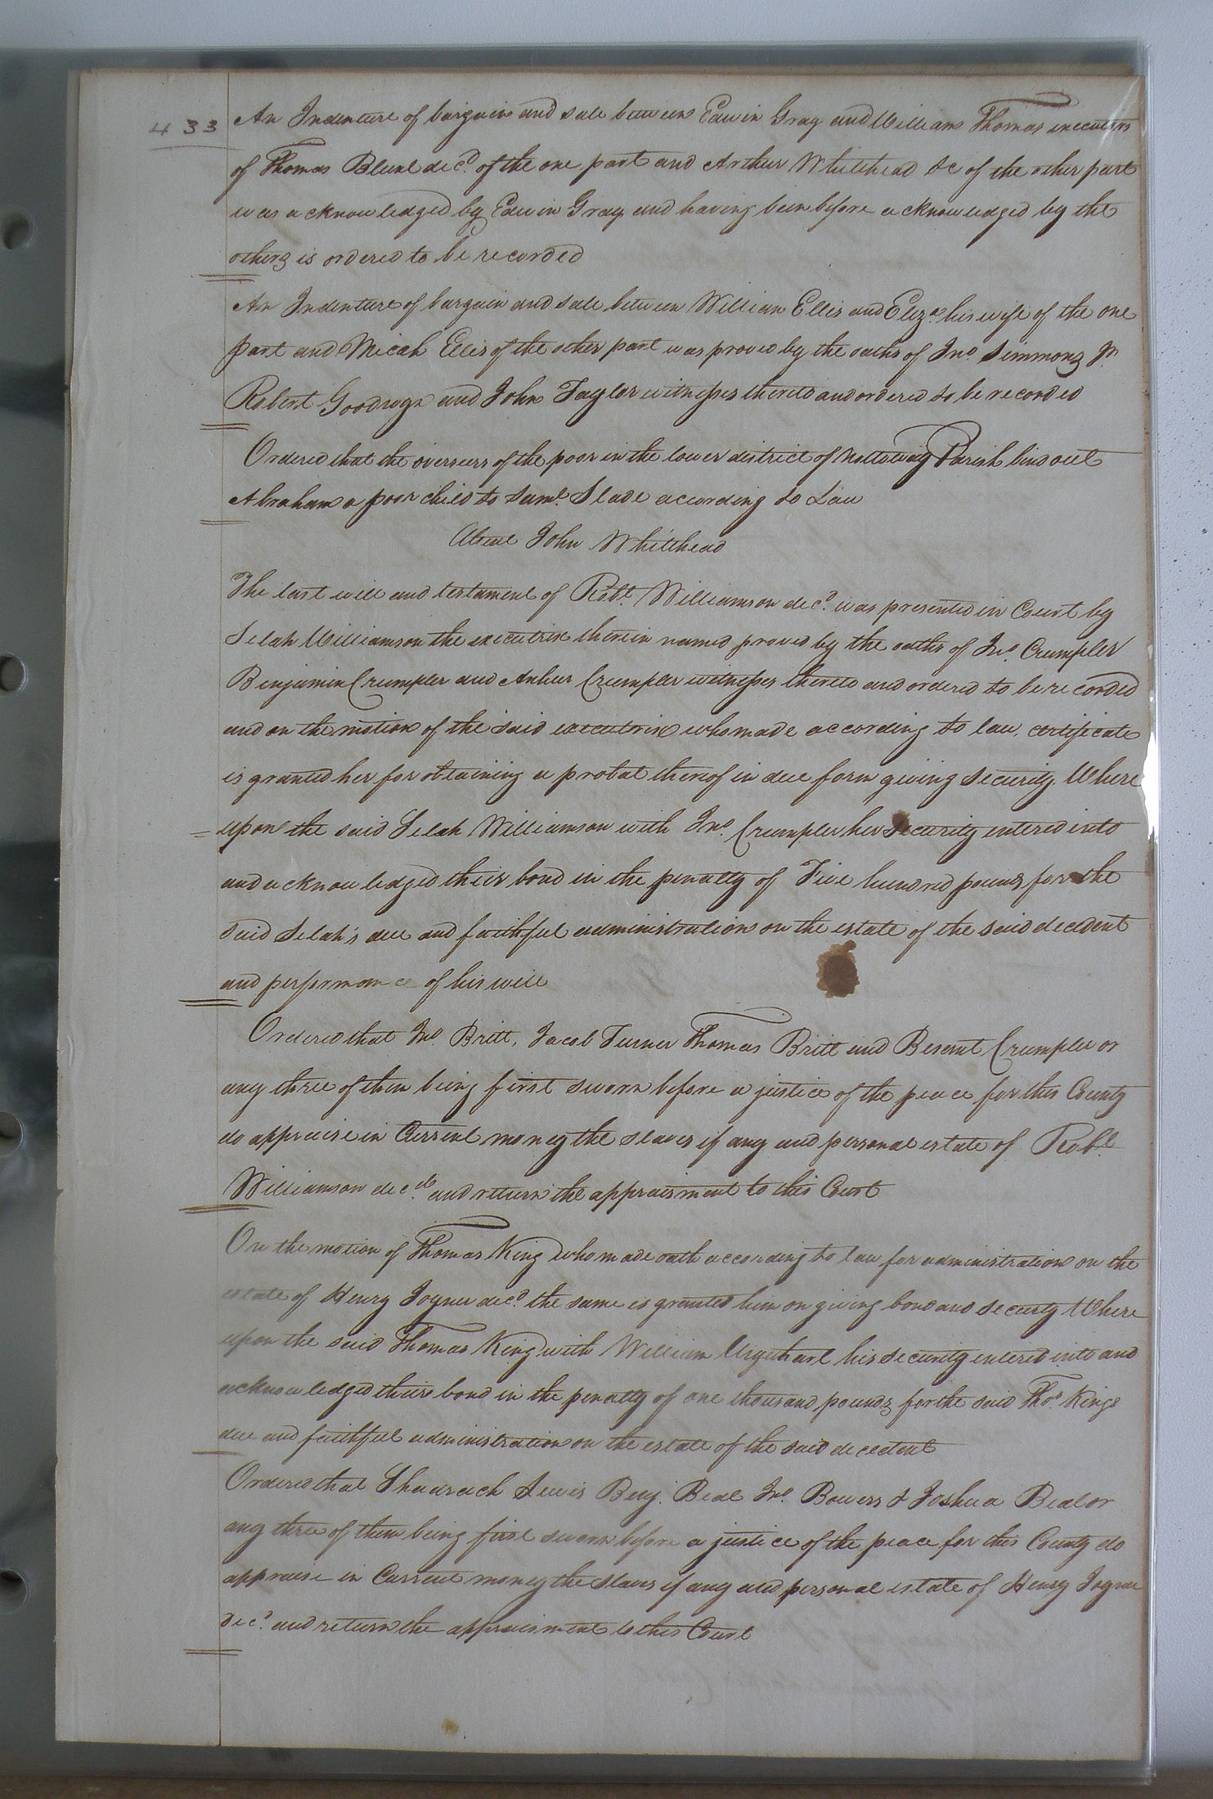 433
An Indenture of bargain and sale between Edwin Gray and William Thomas executors
of Thomas Blunt decd. of the one part and Arthur Whitehead &c of the other part
was acknowledged by Edwin Gray and having been before acknowledged by the
others is ordered to be recorded
An Indenture of bargain and sale between William Ellis and Eliza. his wife of the one
part and Micah Ellis of the other part was proved by the oaths of Jno Simmons Jr.
Robert Goodwyn and John Taylor witnesses thereto and ordered to be recorded
Ordered that the overseers of the poor in the lower district of Nottoway Parish bind out
Abraham a poor child to Saml. Slade according to Law
Absent John Whitehead
The last will and testament of Robt. Williamson decd. was presented in Court by
Selah Williamson the executrix therein named proved by the oaths of Jno. Crumpler
Benjamin Crumpler and Arthur Crumpler witnesses thereto and ordered to be recorded
and on the motion of the said executrix who made according to law certificate
is granted her for obtaining a probat thereof in due form giving security Where
upon the said Selah Williamson with Jno. Crumpler her security entered into
and acknowledged their bond in the penalty of Five hundred pounds for the
said Selah's due and faithful administration on the estate of the said decedent
and performance of his will
Ordered that Jno Britt, Jacob Turner Thomas Britt and Crumpler or
any three of them being first sworn before a justice of the peace for this County
do appraise in Current money the slaves if any and personal estate of Robt.
Williamson decd. and return the appraisment to this Court
On the motion of Thomas King who made oath according to law for administration on the
estate of Henry Joyner decd. the same is granted him on giving bond and security Where
upon the said Thomas King with William Urquhart his security entered into and
acknowledged their bond in the penalty of one thousand pounds for the said Thos. Kings
due and faithful administration on the estate of the said decedent
Ordered that Shadrach Lewis Benj. Beal Jno. Bowers & Joshua Beal or
any three of them being first sworn before a justice of the peace for this County do
appraise in Current money the slaves if any and personal estate of Henry Joyner
decd. and return the appraisment to this Court